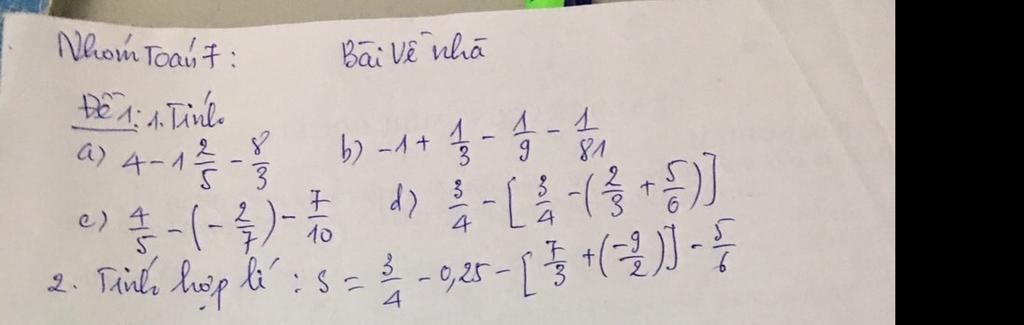 Nhóm Toán 7: Bài Về nhà
Đề 1: 1. Tính.
a) 4 - 1 2/5 - 8/3 b) -1 + 1/3 - 1/9 - 1/81
c) 4/5 - (-2/7) - 7/10 d) 3/4 - [3/4 - (2/3 + 5/6)]
2. Tính hợp lí: S = 3/4 - 0,25 - [7/3 + (-9/2)] - 5/6